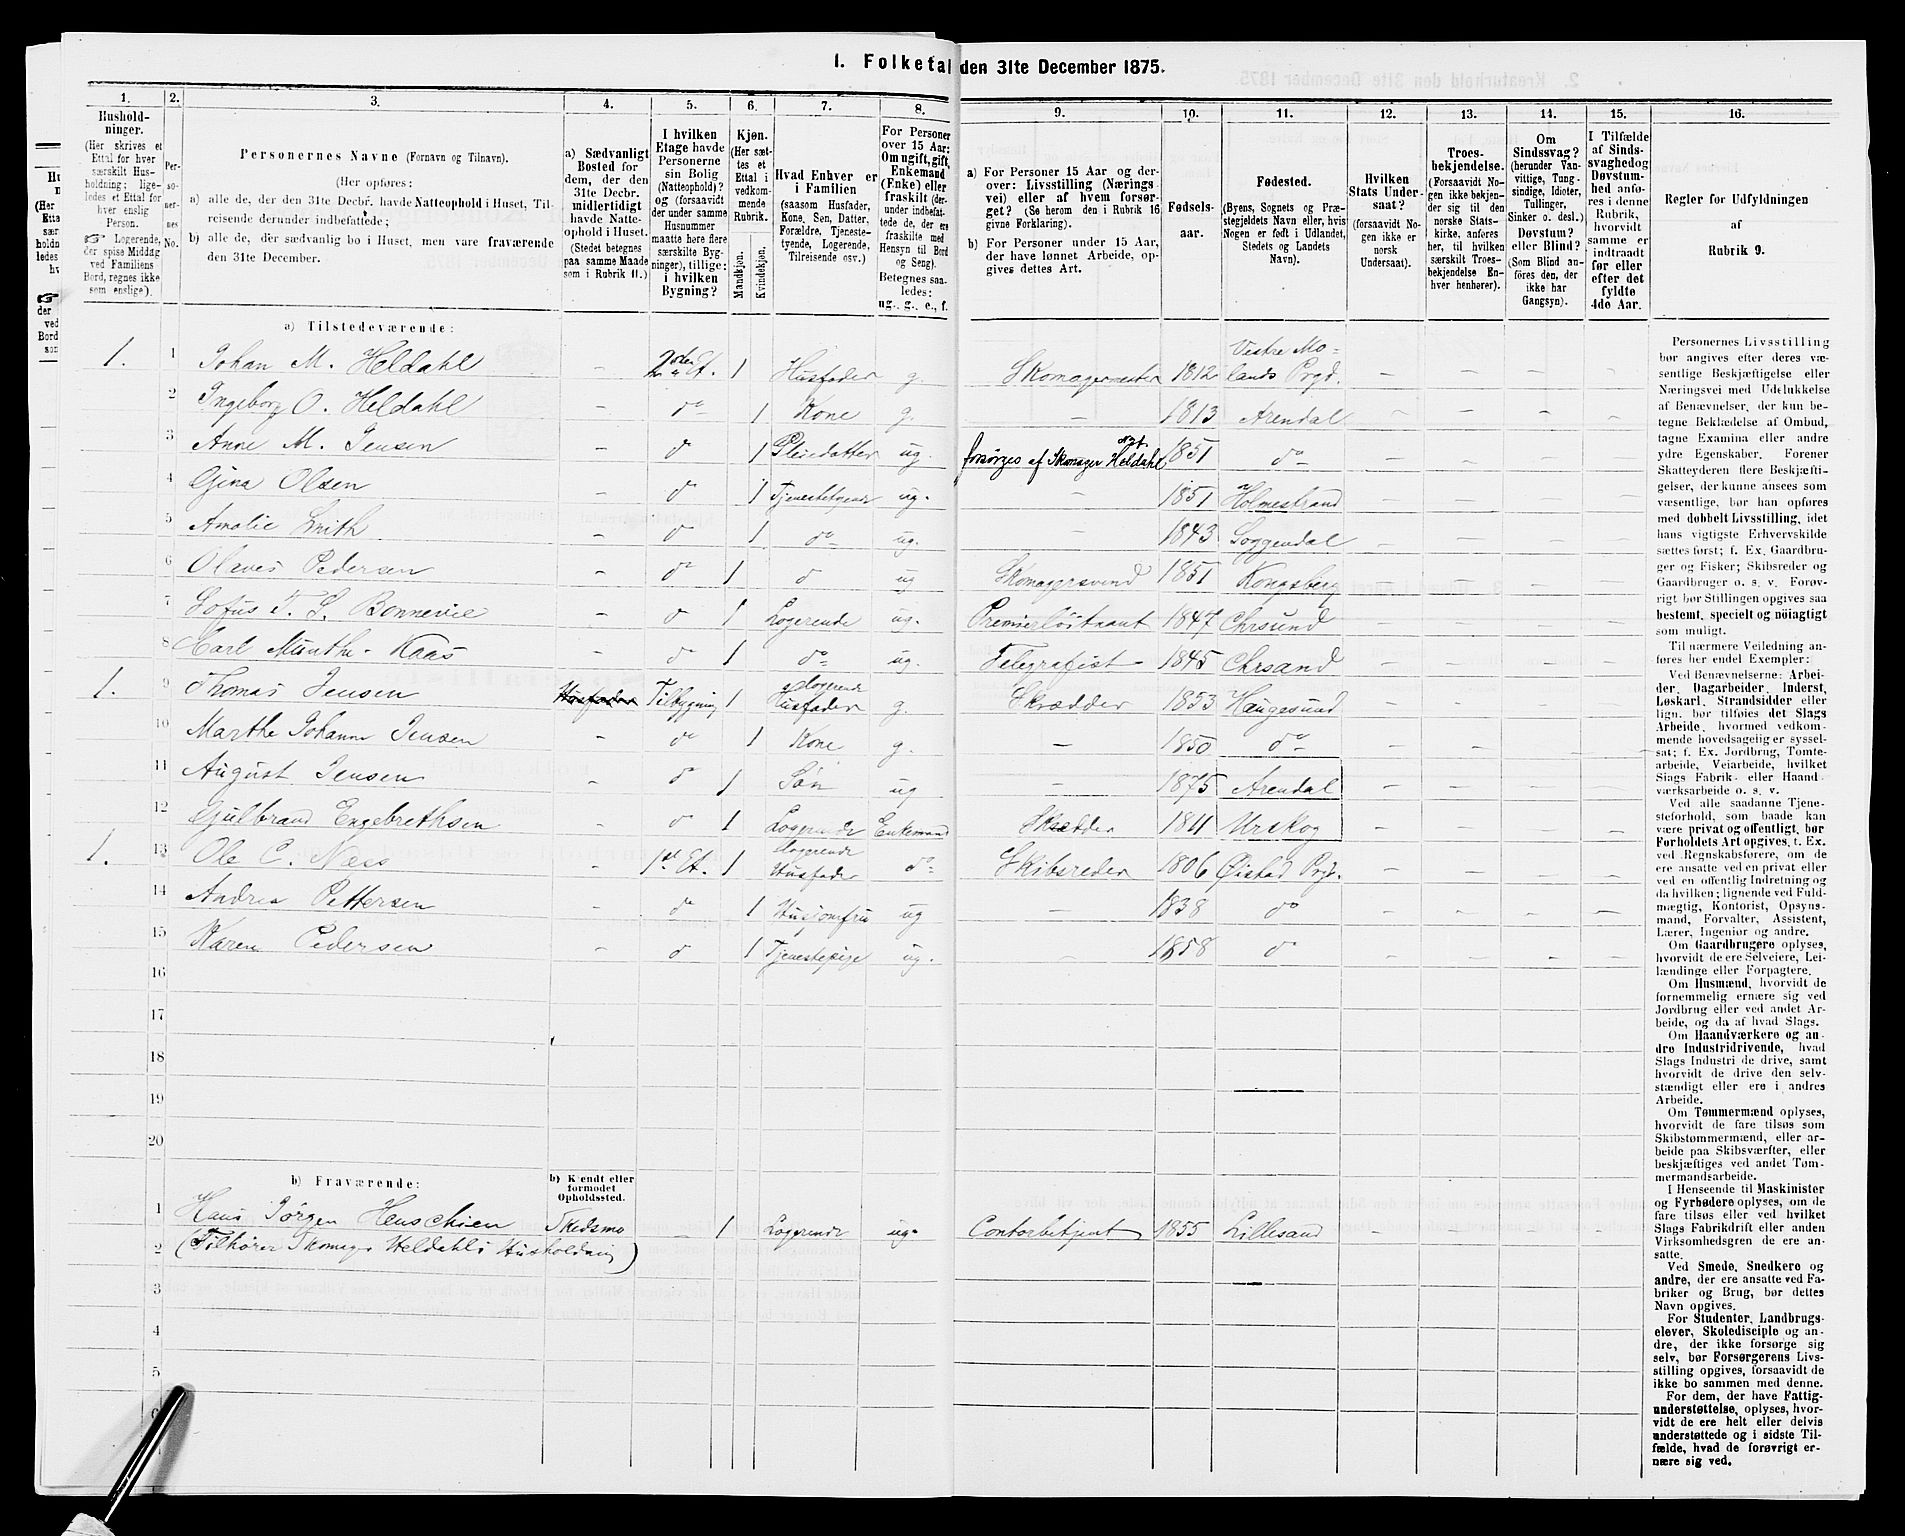 1. Folketal den 31te December 1875.
1. 2. 3. 4. 5. 6. 7. 8. 9. 10. 11. 12. 13. 14. 15. 16.
Hushold-
ninger.
(Her skrives et
Ettal for hver
særskilt Hus-
holdning; lige-
ledes et Ettal for
hver enslig
Person.
☞ Logerende,
der spise Middag
ved Familiens
Bord, regnes ikke
som enslige).
Per-
so-
ner-
nes
No.
Personernes Navne (Fornavn og Tilnavn).
(Her opføres:
a) alle de, der den 31te Decbr. havde Natteophold i Huset, Til-
reisende derunder indbefattede;
b) alle de, der sædvanlig bo i Huset, men vare fraværende
den 31te December.
a) Sædvanligt
Bosted for
dem, der den
31te Decbr.
midlertidigt
havde Natte-
ophold i Huset.
(Stedet betegnes
paa samme Maade
som i Rubrik 11.)
I hvilken
Etage havde
Personerne
sin Bolig
(Natteophold)?
og (forsaavidt
der under samme
Husnummer
maatte høre flere
særskilte Byg-
ninger), tillige:
i hvilken
Bygning?
Kjøn.
(Her sæt-
tes et
Ettal i
vedkom-
mende
Rubrik.
Mandkjøn.
Kvindekjøn.
Hvad Enhver er
i Familien
(saasom Husfader,
Kone, Søn, Datter,
Forældre, Tjeneste-
tyende, Logerende,
Tilreisende osv.)
For Personer
over 15 Aar:
Om ugift, gift,
Enkemand
(Enke) eller
fraskilt (der-
under indbefat-
tede de, der ere
fraskilte med
Hensyn til Bord
og Seng).
Betegnes saa-
ledes:
ug., g., e., f.
a) For Personer 15 Aar og der-
over: Livsstilling (Nærings-
vei) eller af hvem forsør-
get? (Se herom den i Rubrik 16
givne Forklaring).
b) For Personer under 15 Aar,
der have lønnet Arbeide, op-
gives dettes Art.
Fødsels-
aar.
Fødested.
(Byens, Sognets og Præ-
stegjeldets Navn eller, hvis
Nogen er født i Udlandet,
Stedets og Landets
Navn).
Hvilken
Stats Under-
saat?
(forsaavidt No-
gen ikke er
norsk
Undersaat).
Troes-
bekjendelse.
(Forsaavidt No-
gen ikke bekjen-
der sig til den
norske Stats-
kirke, anføres
her, til hvilken
særskilt Troes-
bekjendelse En-
hver henhører).
Om
Sindssvag?
(herunder Van-
vittige, Tung-
sindige, Idioter,
Tullinger,
Sinker o. desl.)
Døvstum?
eller Blind?
(Som Blind an-
føres den, der
ikke har
Gangsyn).
I Tilfælde
af Sinds-
svaghed og
Døvstum-
hed anfø-
res i denne
Rubrik,
hvorvidt
samme er
indtraadt
før eller
efter det
fyldte
4de Aar.
Regler for Udfyldningen
af
Rubrik 9.
a) Tilstedeværende:
1. 1 Johan M. Heldahl 2den Et. 1 Husfader g. Skomagermester 1812 Vestre Mo-
lands Prgd.
2 Ingeborg O. Heldahl – do 1 Kone g. – 1813 Arendal – – – –
3 Anne M. Jensen – do 1 Pleiedatter ug. forsørges af Skomager Heldahl 1851 do – – – –
4 Gina Olsen – do 1 Tjenestetyende ug. – 1851 Holmestrand – – – –
5 Amalie Smith – do 1 do ug. – 1843 Soggendal – – – –
6 Olaves Pedersen – do 1 do ug Skomagersvend 1851 Kongsberg – – – –
7 Sofus F. S. Bonnevie – do 1 Logerende ug. Premierløitnant 1847 Chrsund – – – –
8 Carl Munthe-Kaas – do 1 do ug. Telegrafist 1845 Chrsand – – – –
1. 9 Thomas Jensen Husfader Tilbygning 1 logerende Husfader g. Skrædder 1853 Haugesund – – – –
10 Marthe Johanne Jensen do 1 Kone g. – 1850 do – – – –
11 August Jensen – do 1 Søn ug – 1875 Arendal – – – –
12 Gulbrand Engebrethsen – do 1 Logerende Enkemand Skrædder 1811 Urskog – – – –
1. 13 Ole C. Næss – 1st Et. 1 logerende Husfader do Skibsreder 1806 Øistad Prgd. – – – –
14 Andrea Pettersen – do 1 Husjomfru ug – 1838 do – – – –
15 Karen Pedersen – do 1 Tjenestepige ug. – 1858 do – – – –
16
17
18
19
20
b) Fraværende:
b) Kjendt eller
formodet
Opholdssted.
1 Hans Jørgen Henschien Skedsmo – 1 Logerende ug. Contorbetjent 1855 Lillesand – – – –
2 (Tilhører Skomager Heldahls Husholdning)
3
4
5
6
Personernes Livsstilling
bør angives efter deres væ-
sentlige Beskjæftigelse eller
Næringsvei med Udelukkelse
af Benævnelser, der kun be-
tegne Beklædelse af Ombud,
tagne Examina eller andre
ydre Egenskaber. Forener
Skatteyderen flere Beskjæfti-
gelser, der kunne ansees som
væsentlige, bør han opføres
med dobbelt Livsstilling, idet
hans vigtigste Erhvervskilde
sættes først; f. Ex. Gaardbru-
ger og Fisker; Skibsreder og
Gaardbruger o. s. v. Forøv-
rigt bør Stillingen opgives saa
bestemt, specielt og nøiagtigt
som muligt.
Til nærmere Veiledning an-
føres her endel Exempler:
Ved Benævnelserne: Arbei-
der, Dagarbeider, Inderst,
Løskarl, Strandsidder eller
lign. bør tilføies det Slags
Arbeide, hvormed vedkom-
mende hovedsagelig er syssel-
sat; f. Ex. Jordbrug, Tomte-
arbeide, Veiarbeide, hvilket
Slags Fabrik- eller Haand-
værksarbeide o. s. v.
Ved alle saadanne Tjene-
steforhold, som baade kan
være privat og offentligt, bør
Forholdets Art opgives, t. Ex.
ved Regnskabsførere, om de
ere ansatte ved en privat eller
ved en offentlig Indretning og
da hvilken; lignende ved Fuld-
mægtig, Kontorist, Opsyns-
mand, Forvalter, Assistent,
Lærer, Ingeniør og andre.
Om Gaardbrugere oplyses,
hvorvidt de ere Selveiere, Lei-
lændinge eller Forpagtere.
Om Husmænd, hvorvidt de
fornemmelig ernære sig ved
Jordbrug eller ved andet Ar-
beide, og da af hvad Slags.
Om Haandværkere og an-
dre Industridrivende, hvad
Slags Industri de drive, samt
hvorvidt de drive den selv-
stændigt eller ere i andres
Arbeide.
Om Tømmermænd oplyses,
hvorvidt de fare tilsøs som
Skibstømmermænd, eller ar-
beide paa Skibsværfter, eller
beskjæftiges ved andet Tøm-
mermandsarbeide.
I Henseende til Maskinister
og Fyrbødere oplyses, om de
fare tilsøs eller ved hvilket
Slags Fabrikdrift eller anden
Virksomhedsgren de ere an-
satte.
Ved Smede, Snedkere og
andre, der ere ansatte ved Fa-
briker og Brug, bør dettes
Navn opgives.
For Studenter, Landbrugs-
elever, Skoledisciple og an-
dre, der ikke forsørge sig
selv, bør Forsørgerens Livs-
stilling opgives, forsaavidt de
ikke bo sammen med denne.
For dem, der have Fattig-
understøttelse, oplyses, hvor-
vidt de ere helt eller delvis
understøttede og i sidste Til-
fælde, hvad de forøvrigt er-
nære sig ved.